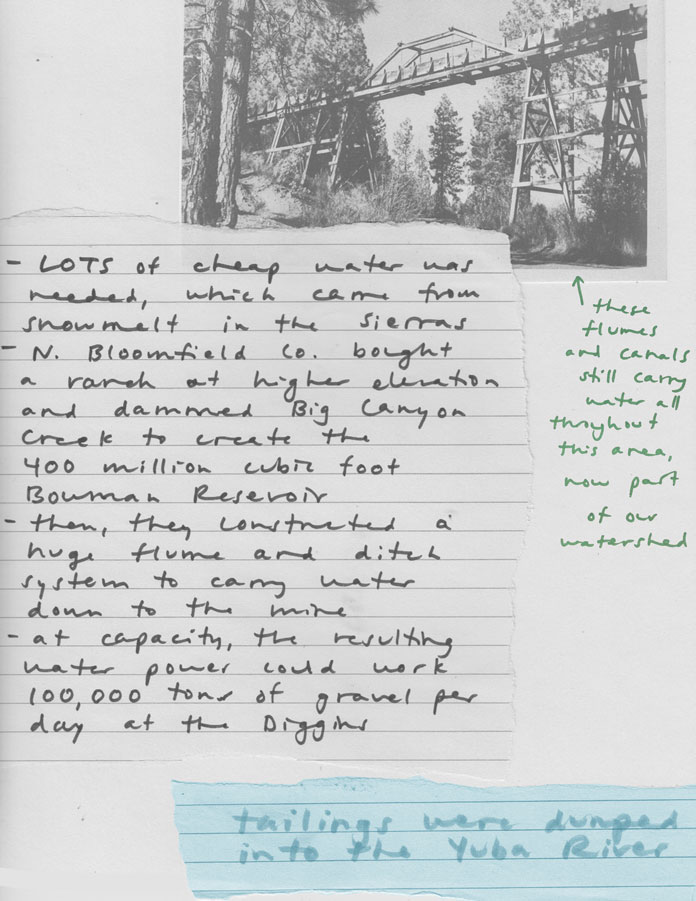 - LOTS of cheap water was
needed, which came from
snowmelt in the Sierras
- N. Bloomfield Co. bought
a ranch at higher elevation
and dammed Big Canyon
Creek to create the
400 million cubic foot
Bowman Reservoir
- then, they constructed a
huge flume and ditch
system to carry water
down to the mine
- at capacity, the resulting
water power could work
100,000 tons of gravel per
day at the Diggins
these
flumes
and canals
still carry
water all
throughout
this area,
now part
of our
watershed
tailings were dumped
into the Yuba River